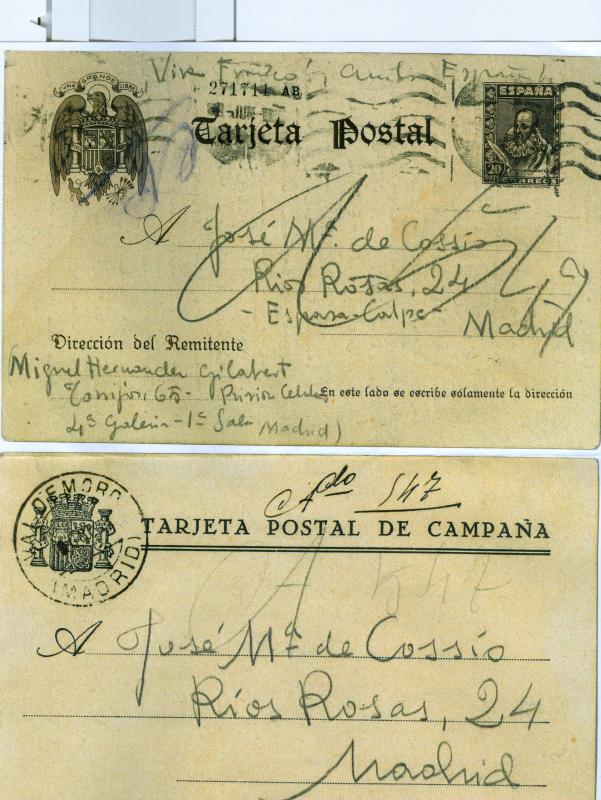 UNA GRANDE LIBRE
Viva Franco! Arriba España!
271711 AB
ESPAÑA
Tarjeta Postal
20
CORREOS
A José Mª. de Cossío
Ríos Rosas, 24
- Espasa-Calpe -
Madrid
Dirección del Remitente
Miguel Hernandez Gilabert
Torrijos, 65 - Prision Celular
4ª Galeria - 1ª Sala Madrid)
En este lado se escribe solamente la dirección
Cdo 547
VALDEMORO
(MADRID)
TARJETA POSTAL DE CAMPAÑA
A 547
A José Mª. de Cossío
Ríos Rosas, 24
Madrid